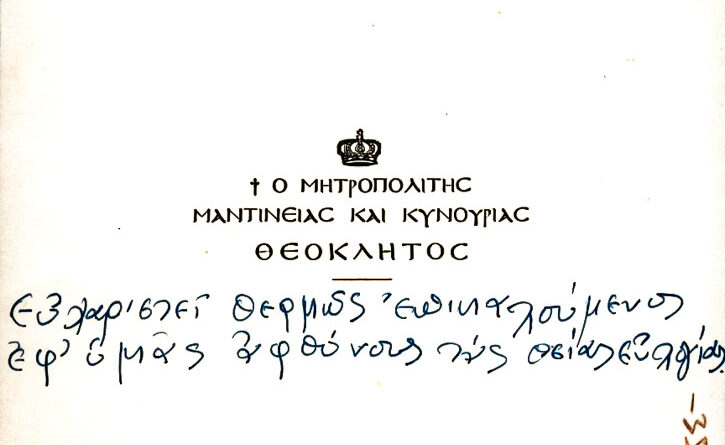 † Ο ΜΗΤΡΟΠΟΛΙΤΗς
ΜΑΝΤΙΝΕΙΑς ΚΑΙ ΚΥΝΟΥΡΙΑς
ΘΕΟΚΛΗΤΟς
Εὐχαριστεῖ θερμῶς ἐπικαλούμενος
ἐφ' ὑμᾶς ἀφθόνους τάς θείας εὐλογίας.